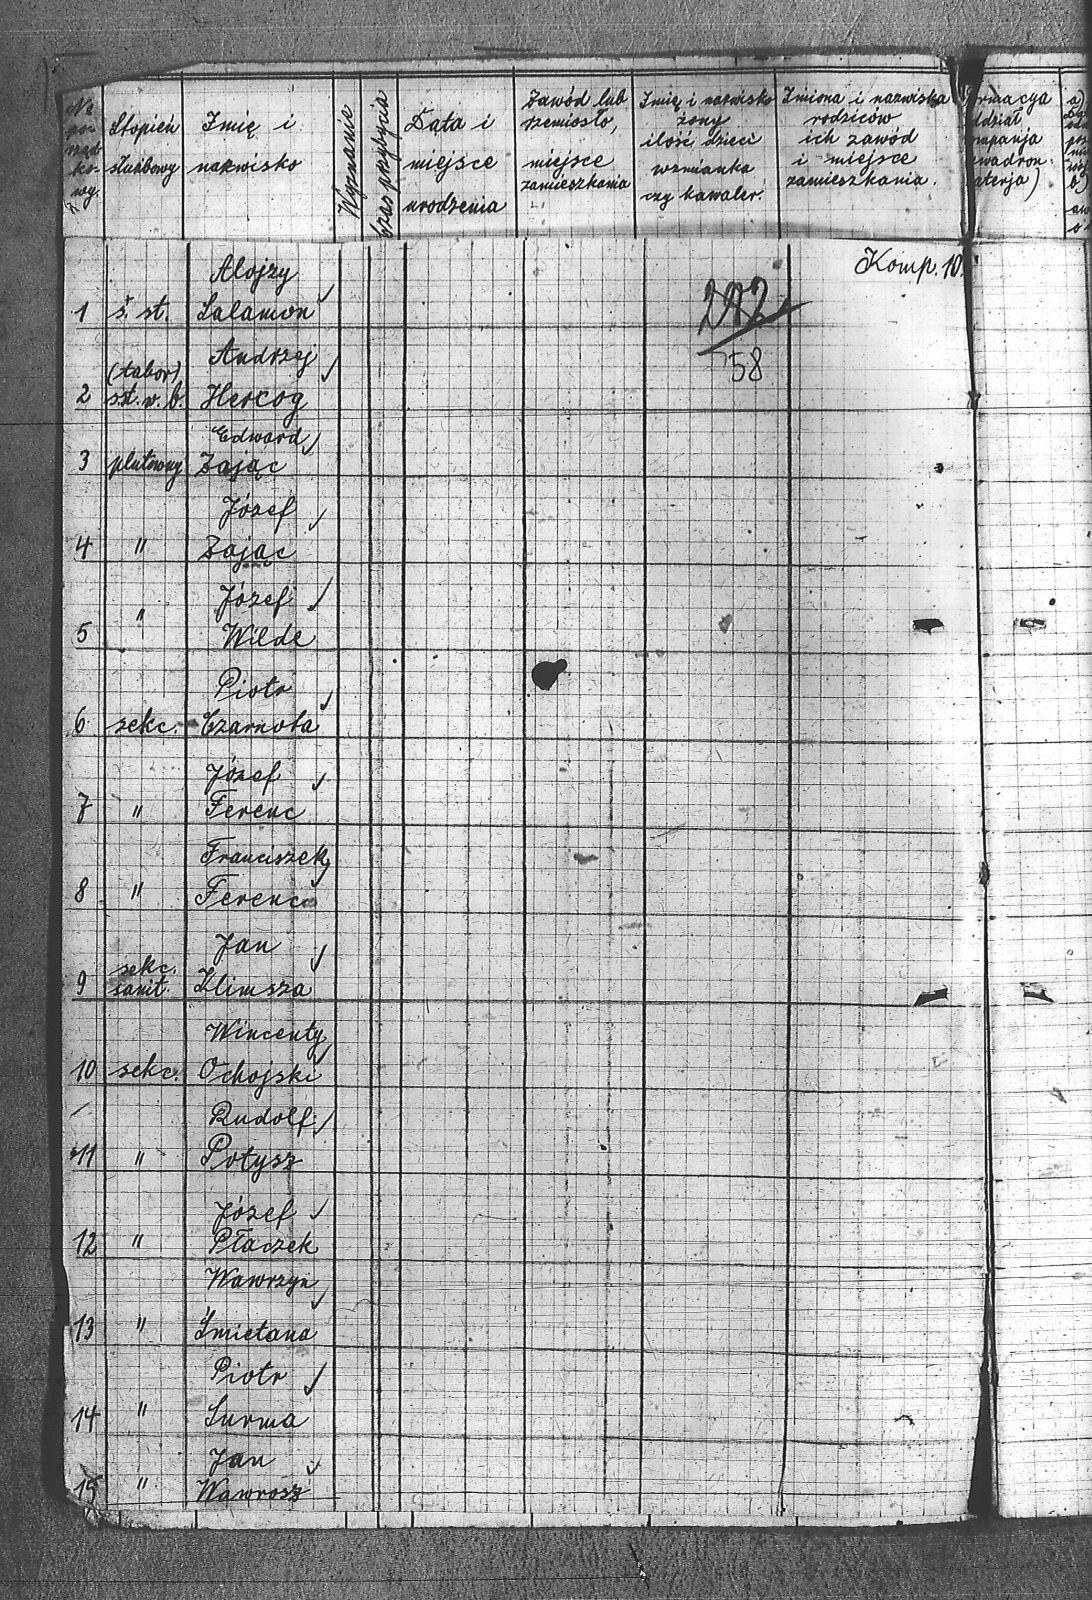 No
po-
rząd
ko-
wy.
Stopień
służbowy
Imię i
nazwisko
Wyznanie
Czas przybycia
Data i
miejsce
urodzenia
Zawód lub
rzemiosło,
miejsce
zamieszkania
Imię i nazwisko
żony
ilość dzieci
wzmianka
czy kawaler.
Imiona i nazwiska
rodziców
ich zawód
i miejsce
zamieszkania.
rmacya
ddział
mpanja
wadron
aterja)
Komp. 10.
58
Alojzy
1 s. st. Salamon
Andrzej
(tabor)
2 s.st. w. b. Hercog
Edward
3 plutonowy Zając
Józef
4 " Zając
Józef
5 " Wilde
Piotr
6 sekc. Czarnota
Józef
7 " Ferenc
Franciszek
8 " Ferenc
Jan
sekc.
9 sanit. Klimsza
Wincenty
10 sekc. Ochojski
Rudolf
11 " Potysz
Józef
12 " Płaczek
Wawrzyn
13 " Śmietana
Piotr
14 " Surma
Jan
15 " Wawrosz